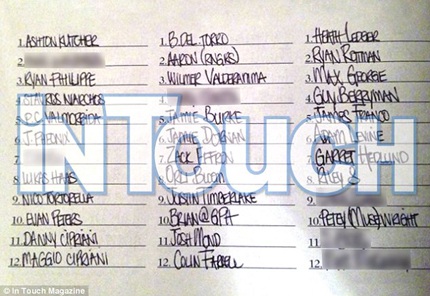 1. ASHTON KUTCHER
2.
3. RYAN PHILIPPE
4. STAVROS NIARCHOS
5. P.C. VALMORBIDA
6. J. PHEONIX
7.
8. LUKAS HAAS
9. NICO TORTORELLA
10. EVAN PETERS
11. DANNY CIPRIANI
12. MAGGIO CIPRIANI
1. B. DEL TORRO
2. AARON
3. WILMER VALDERAMA
4.
5. JAMIE BURKE
6. JAMIE DORNAN
7. ZACK EFFRON
8. ORLI BLOOM
9. JUSTIN TIMBERLAKE
10. BRIAN @ GPA
11. JOSH MOND
12. COLIN FARELL
1. HEATH LEDGER
2. RYAN ROTTMAN
3. MAX GEORGE
4. GUY BERRYMAN
5. JAMES FRANCO
6. ADAM LEVINE
7. GARRET HEDLUND
8.
9.
10. PETEY (MUSE) WRIGHT
11.
12.
INTouch
© In Touch Magazine